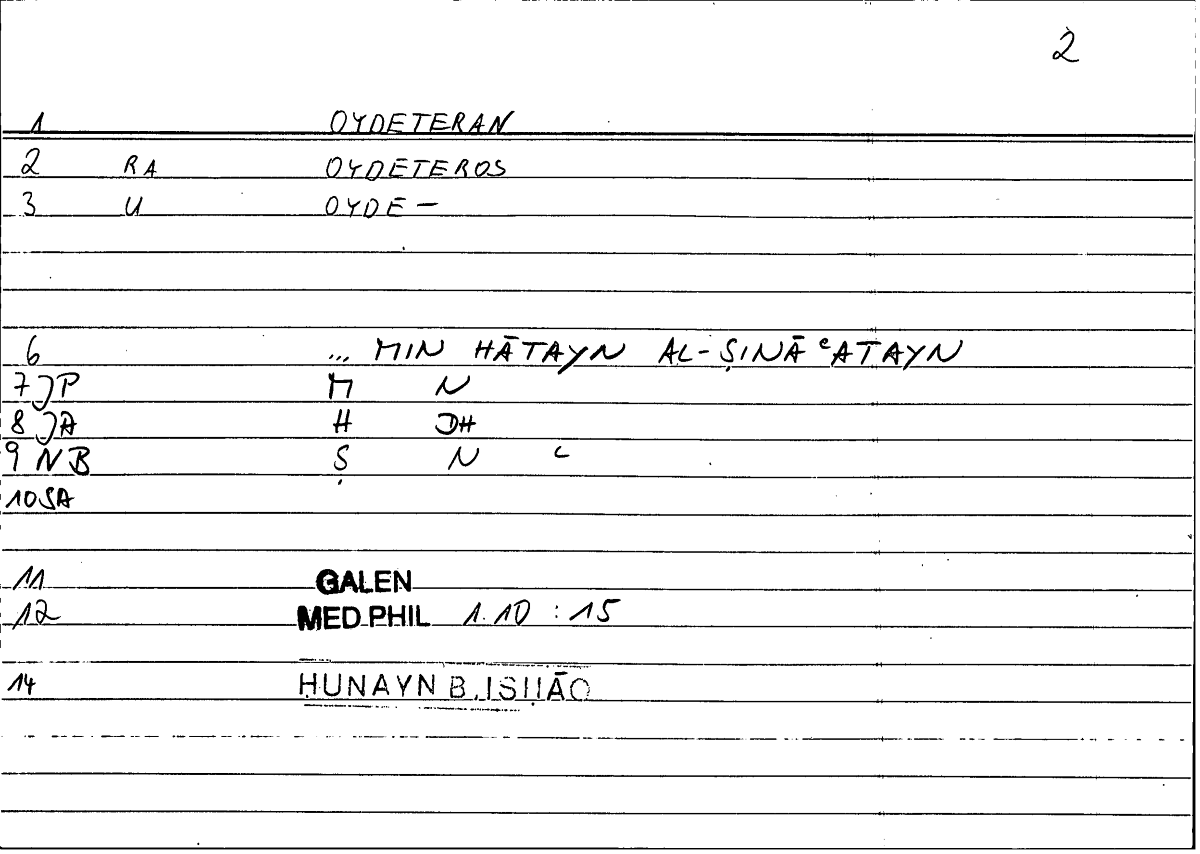 2
1 OYDETERAN
2 RA OYDETEROS
3 U OYDE —
6 ... MIN HĀTAYN AL-ṢINĀ ᶜATAYN
7 JP M N
8 JA H DH
9 NB Ṣ N ᶜ
10 SA
11 GALEN
12 MED PHIL 1.10 : 15
14 ḤUNAYN B. ISḤĀQ